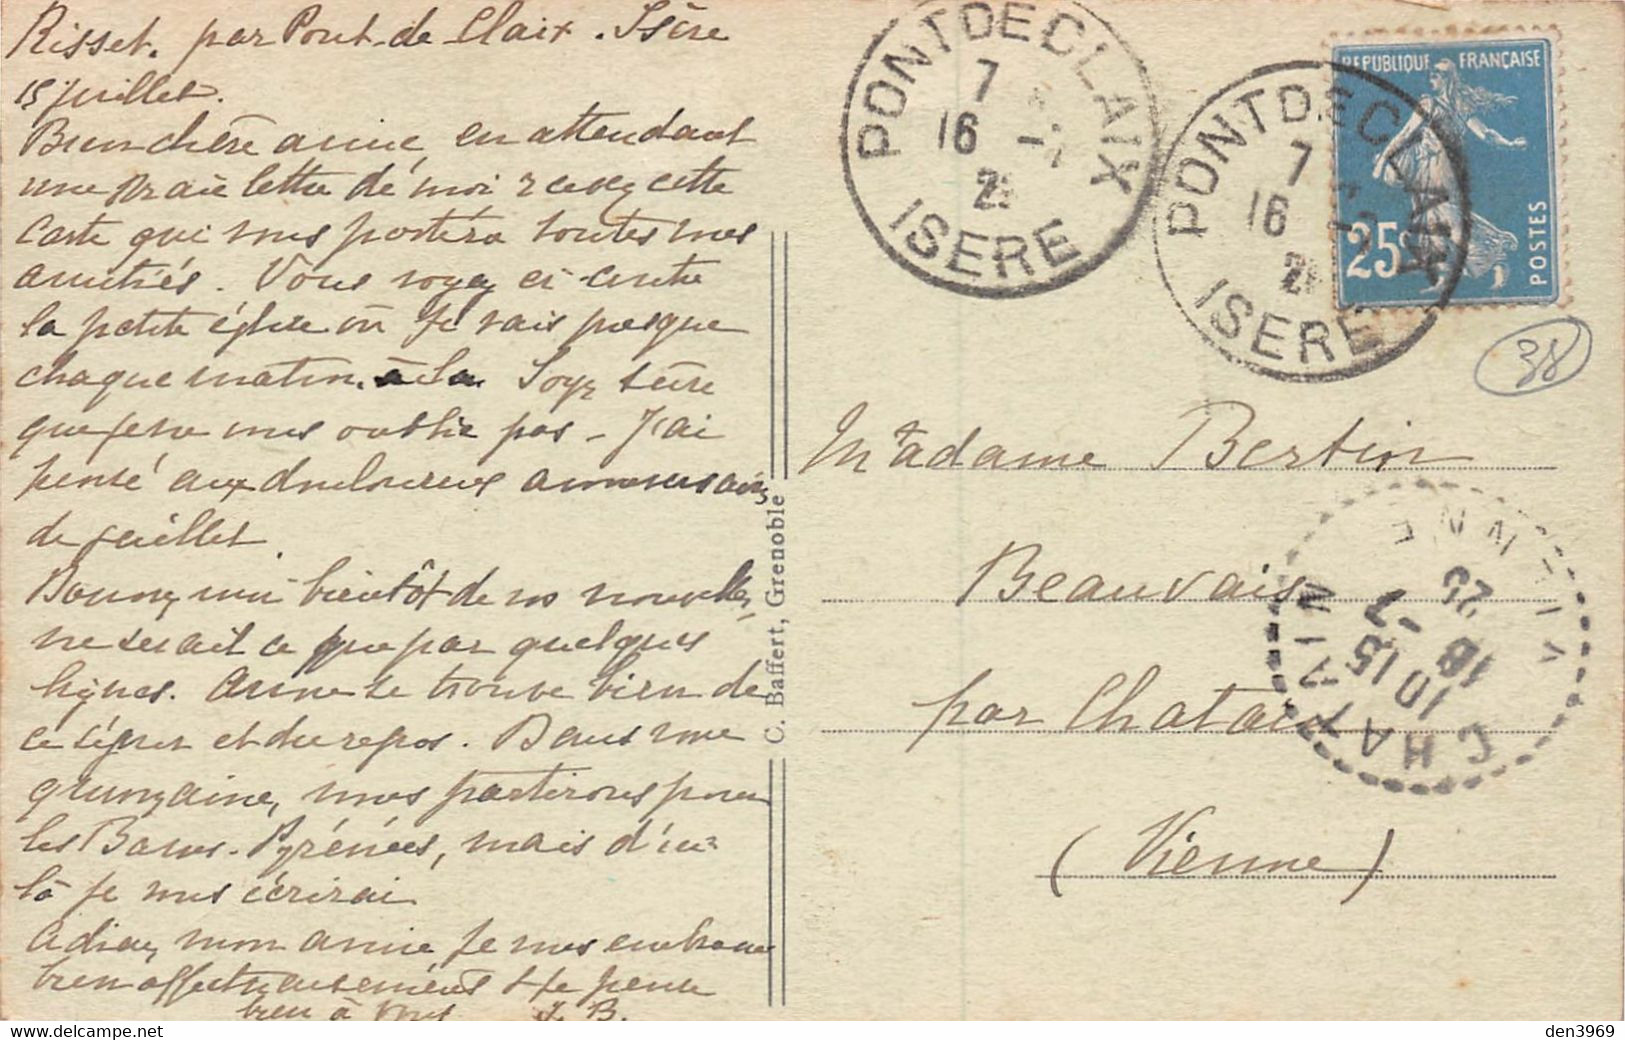 Risset. par Pont-de Claix. Isère
15 juillet.
Bien chère amie, en attendant
une vraie lettre de moi recevez cette
carte qui vous portera toutes mes
amitiés. Vous voyez ci-contre
la petite église où je vais presque
chaque matin à la Soyez sûre
que je ne vous oublie pas - J'ai
pensé aux douloureux anniversaires
de juillet.
Donnez moi bientôt de vos nouvelles,
ne serait ce que par quelques
lignes. Anne se trouve bien de
ce séjour et du repos. Dans une
quinzaine, nous partirons pour
les Basses-Pyrénées, mais d'ici
là je vous écrirai
Adieu, mon amie je vous embrasse
bien affectueusement et je pense
bien à vous J. B.
C. Baffert, Grenoble
PONT DE CLAIX
7
16 -7
25
ISERE
PONT DE CLAIX
7
16 -7
25
ISERE
REPUBLIQUE FRANÇAISE
25c
POSTES
38
Madame Bertin
Beauvais
par Chatain
(Vienne)
CHATAIN
10 15
16 -7
25
VIENNE
den3969